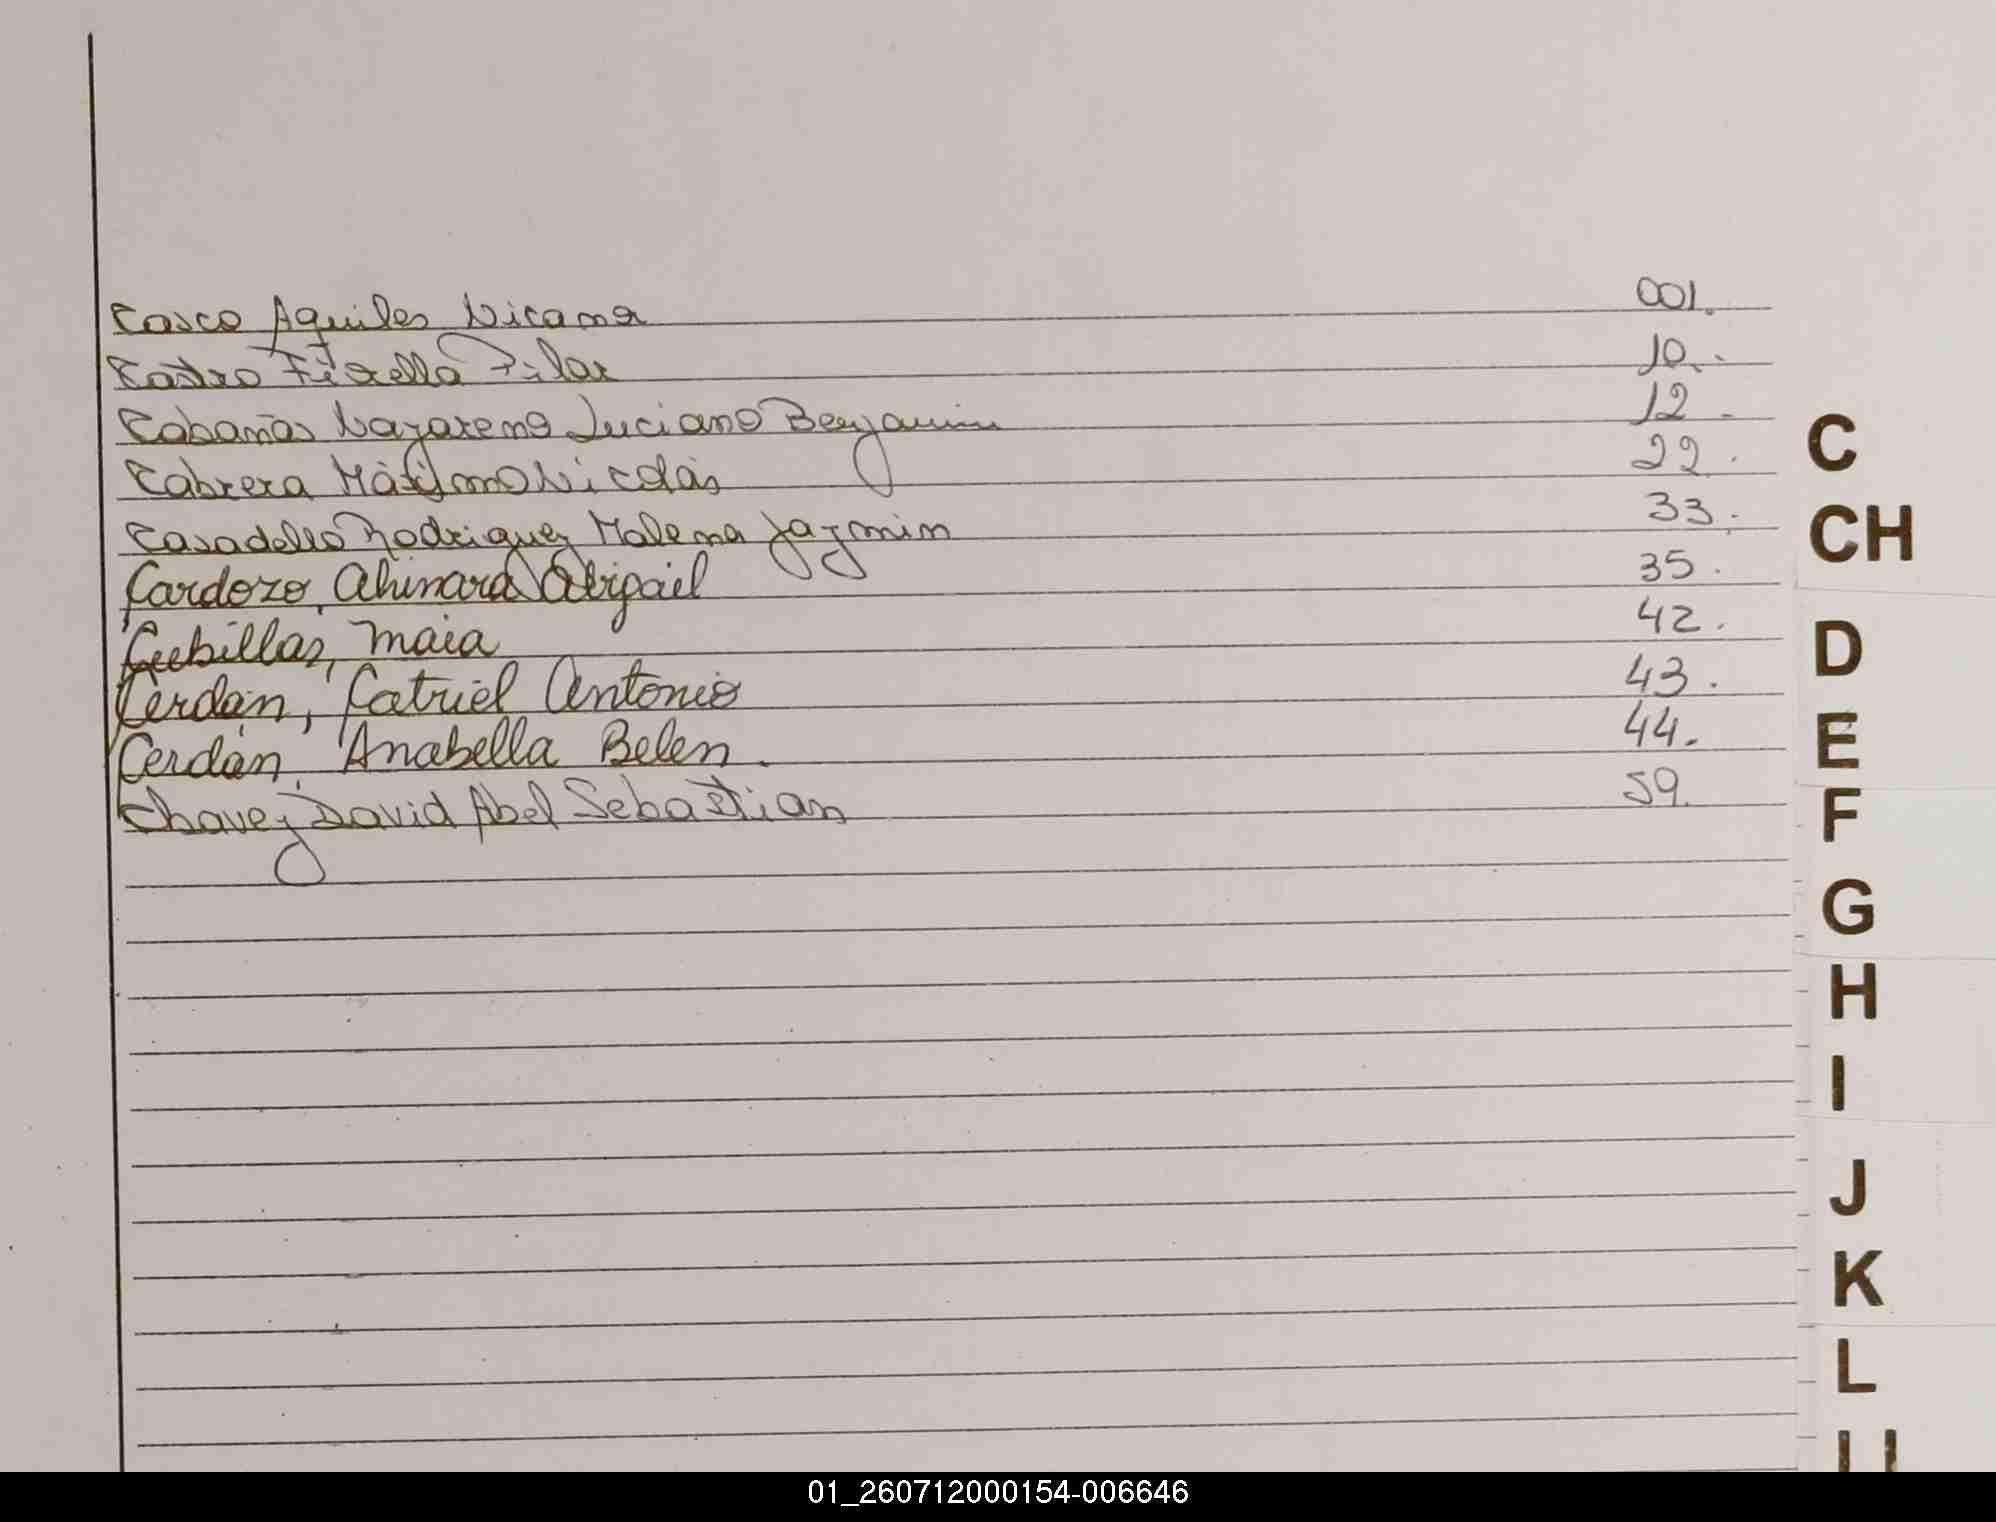 Casco Aquiles Nicanor 001.
Castro Fiorella Pilar 10.
Cabañas Nazareno Luciano Benjamin 12.
Cabrera Máximo Nicolás 22.
Casadello Rodriguez Malena Jazmin 33.
Cardozo, Ahinara Abigail 35.
Cubillas, Maia 42.
Cerdán, Catriel Antonio 43.
Cerdán, Anabella Belen. 44.
Chavez David Abel Sebastian 59.
C
CH
D
E
F
G
H
I
J
K
L
01_260712000154-006646